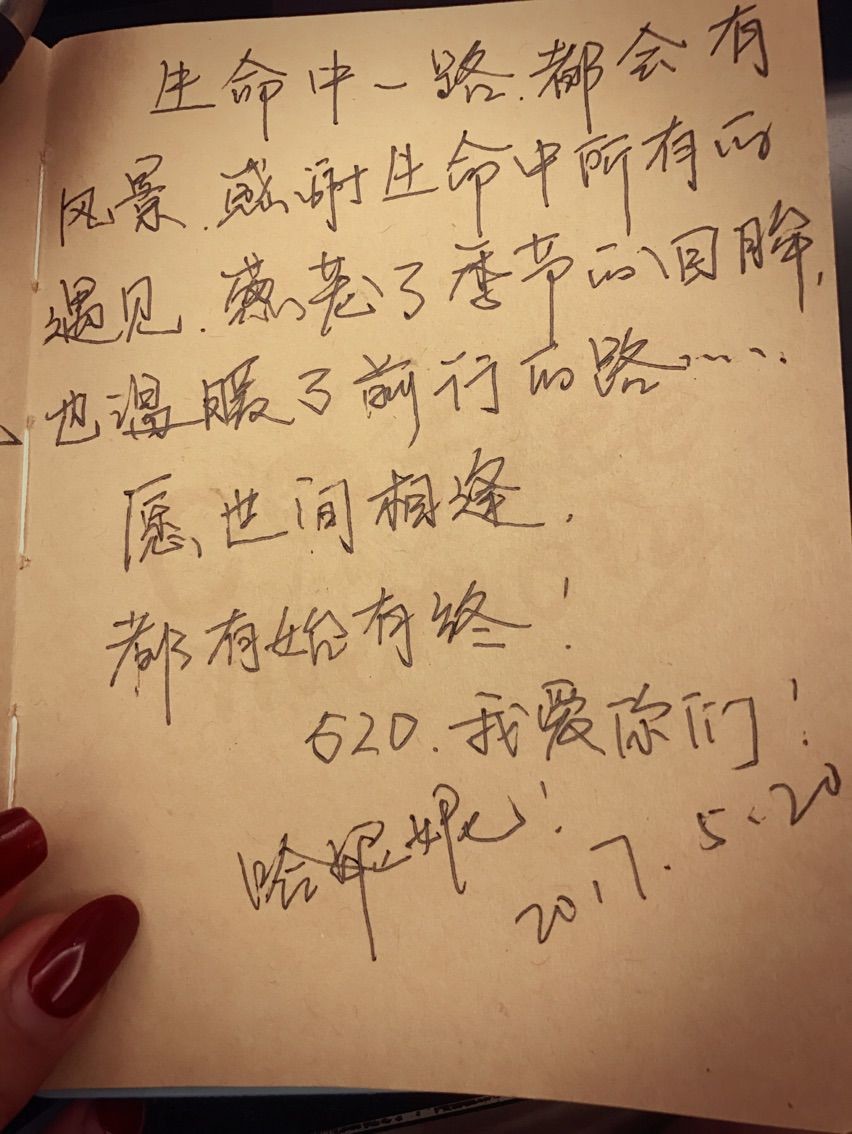 生命中一路.都会有
风景.感谢生命中所有的
遇见.惹老了季节的回眸,
也温暖了前行的路……
愿世间相逢,
都有始有终!
520.我爱你们!
哈妮妮!
2017.5.20